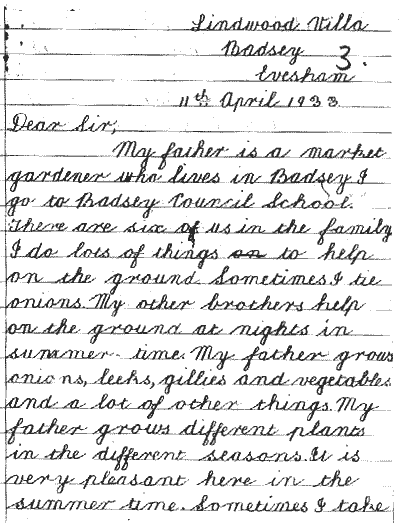 Lindwood Villa
Badsey
3.
Evesham
11th April 1933
Dear Sir,
My father is a market
gardener who lives in Badsey I
go to Badsey Council School.
There are six of us in the family
I do lots of things on to help
on the ground. Sometimes I tie
onions. My other brothers help
on the ground at nights in
summer- time. My father grows
onions, leeks, gillies and vegetables
and a lot of other things. My
father grows different plants
in the different seasons. It is
very pleasant here in the
summer time. Sometimes I take